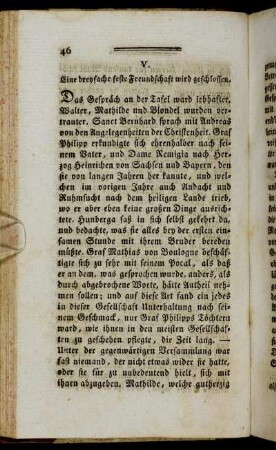 46
V.
Eine dreyfache feste Freundschaft wird geschlossen.
Das Gespräch an der Tafel ward lebhafter.
Walter, Mathilde und Blondel wurden ver-
trauter. Sanct Bernhard sprach mit Andreas
von den Angelegenheiten der Christenheit. Graf
Philipp erkundigte sich ehrenhalber nach sei-
nem Vater, und Dame Remigia nach Her-
zog Heinrichen von Sachsen und Bayern, den
sie von langen Jahren her kannte, und wel-
chen im vorigen Jahre auch Andacht und
Ruhmsucht nach dem heiligen Lande trieb,
wo er aber eben keine großen Dinge ausrich-
tete. Hunderga saß in sich selbst gekehrt da,
und bedachte, was sie alles bey der ersten ein-
samen Stunde mit ihrem Bruder bereden
müßte. Graf Mathias von Boulogne beschäf-
tigte sich zu sehr mit seinem Pocal, als daß
er an dem, was gesprochen wurde, anders, als
durch abgebrochene Worte, hätte Antheil neh-
men sollen; und auf diese Art fand ein jedes
in dieser Gesellschaft Unterhaltung nach sei-
nem Geschmack, nur Graf Philipps Töchtern
ward, wie ihnen in den meisten Gesellschaf-
ten zu geschehen pflegte, die Zeit lang. —
Unter der gegenwärtigen Versammlung war
fast niemand, der nicht etwas wider sie hatte,
oder sie für zu unbedeutend hielt, sich mit
ihnen abzugeben. Mathilde, welche gutherzig